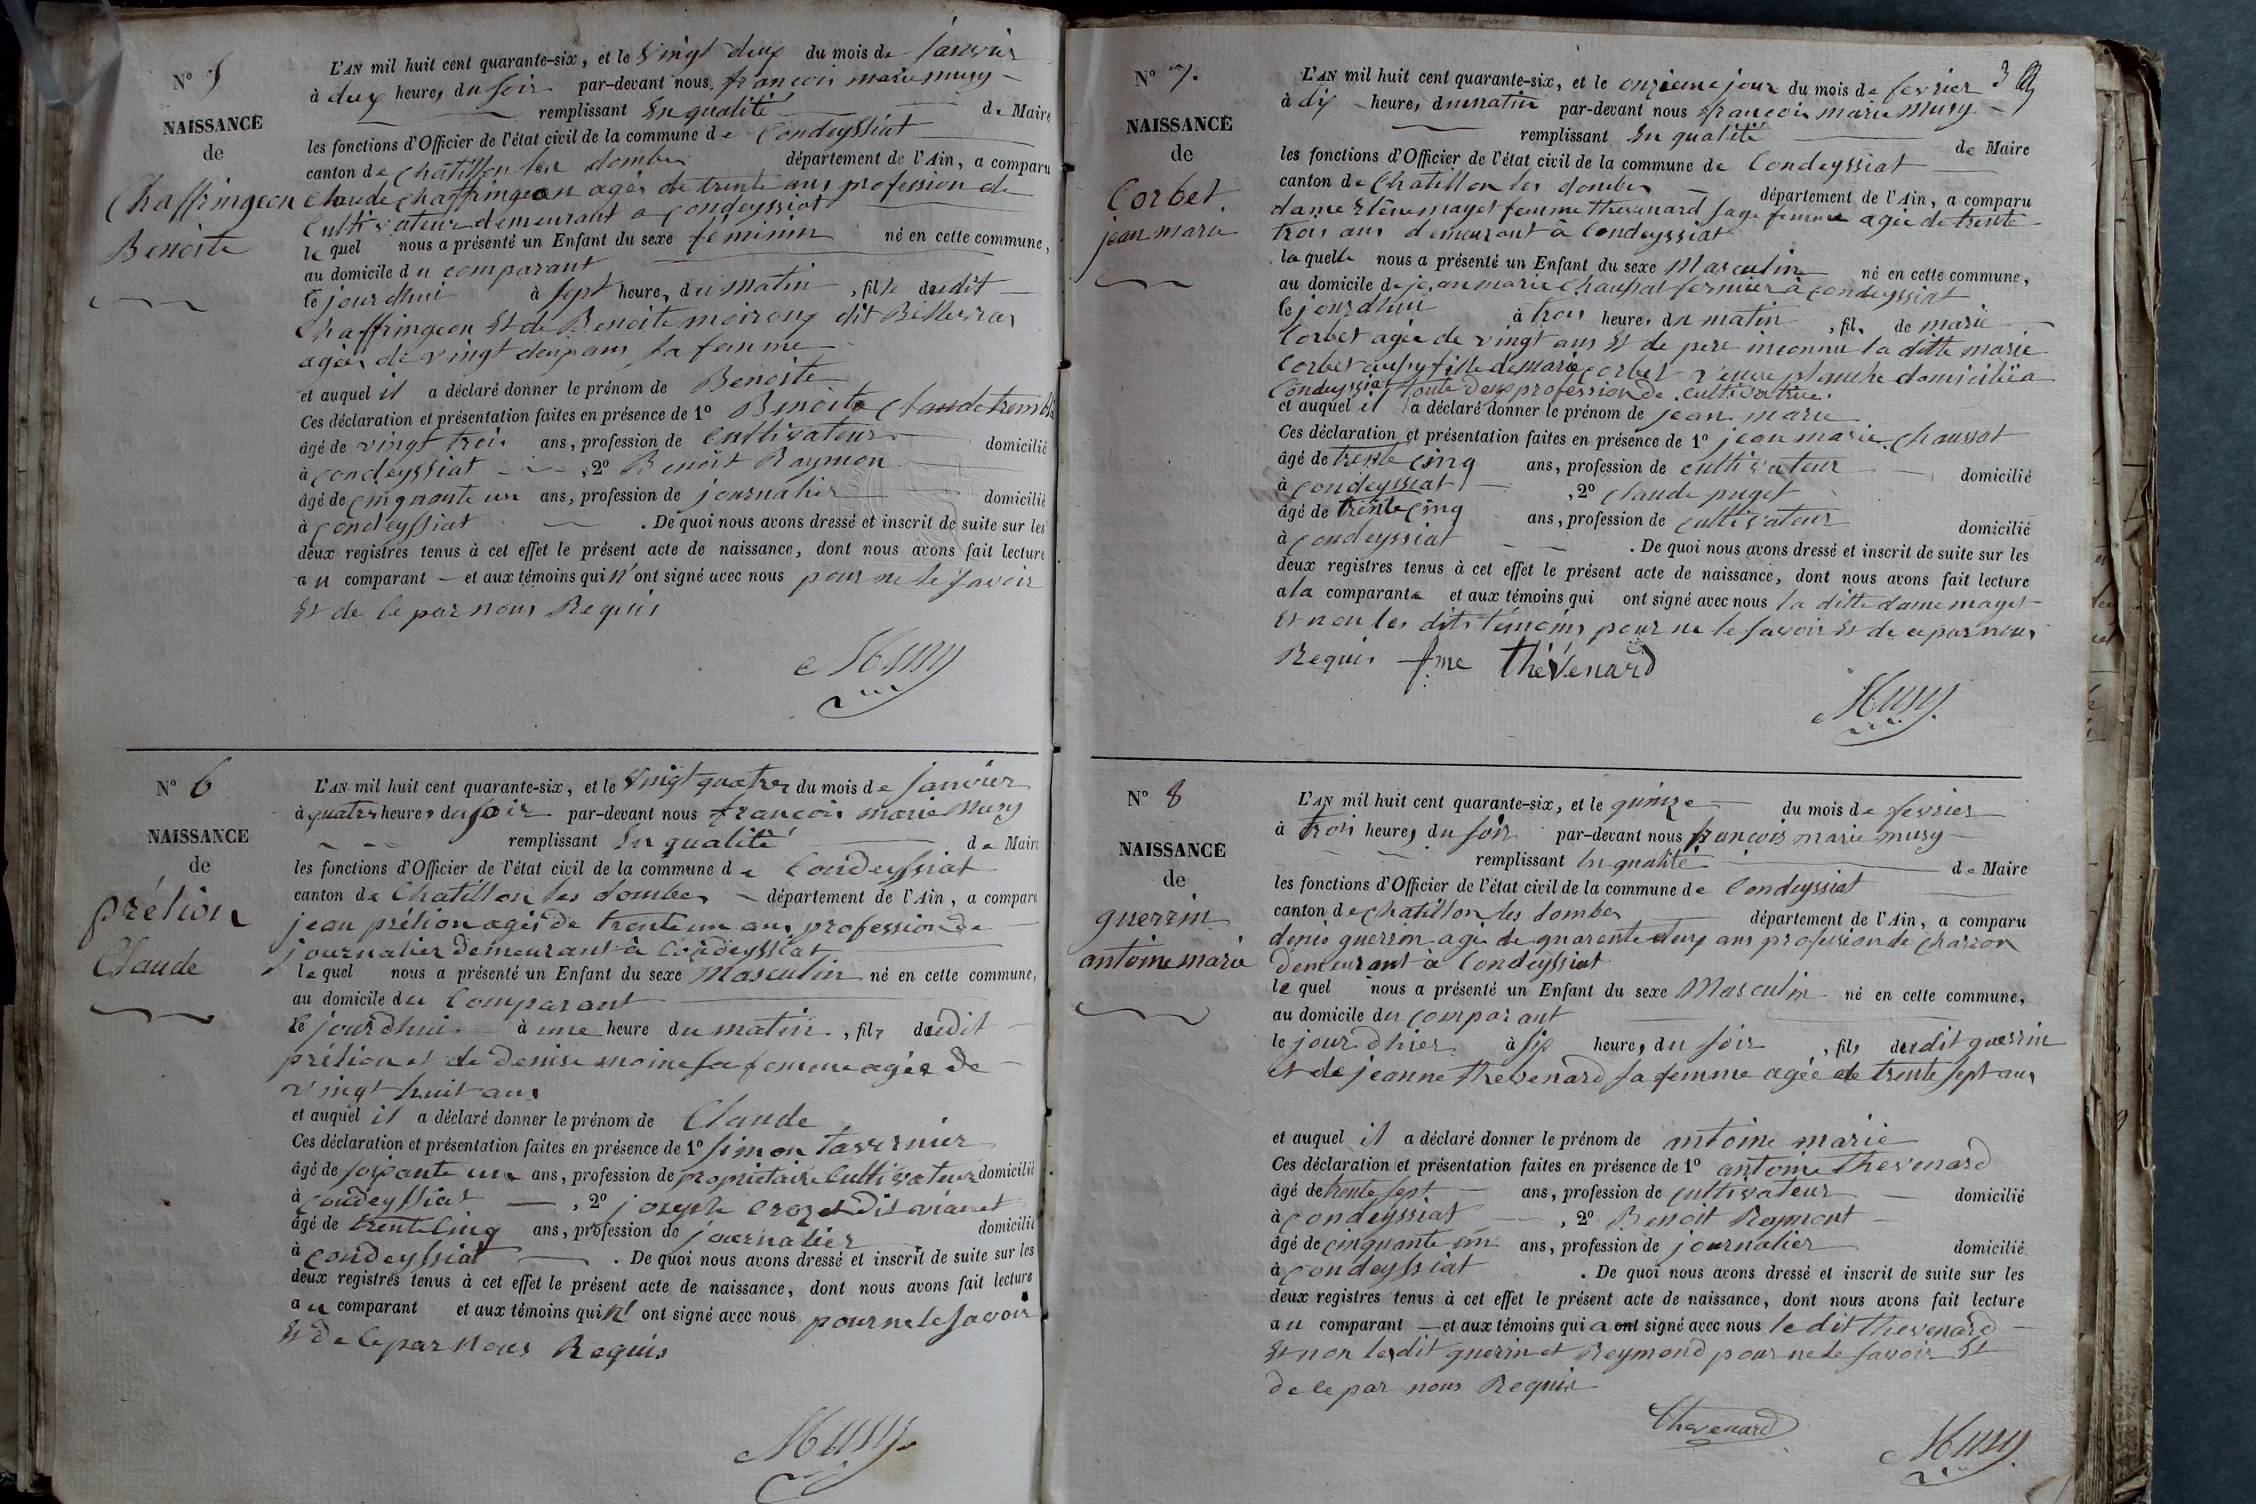 N° 5
NAISSANCE
de
Chaffringeon
Benoite
L'AN mil huit cent quarante-six, et le vingt deux du mois de janvier
à deux heures du soir par-devant nous françois marie musy
remplissant En qualité de Maire
les fonctions d'Officier de l'état civil de la commune de Condeyssiat
canton de Châtillon les dombes département de l'Ain, a comparu
Claude Chaffringeon agés de trente ans profession de
Cultivateur demeurant a Condeyssiat
lequel nous a présenté un Enfant du sexe feminin né en cette commune,
au domicile du comparant
le jourdhui à sept heures du matin, fille dudit
Chaffringeon Et de Benoite moiroux dit
agées de vingt deux ans sa femme
et auquel il a déclaré donner le prénom de Benoite
Ces déclaration et présentation faites en présence de 1° Benoite Claude
âgé de vingt trois ans, profession de Cultivateur domicilié
à Condeyssiat, 2° Benoit Raymon
âgé de cinquante un ans, profession de journalier domicilié
à Condeyssiat. De quoi nous avons dressé et inscrit de suite sur les
deux registres tenus à cet effet le présent acte de naissance, dont nous avons fait lecture
au comparant et aux témoins qui n'ont signé avec nous pour ne le savoir
Et de ce par nous Requis
Musy
N° 6
NAISSANCE
de
prélion
Claude
L'AN mil huit cent quarante-six, et le vingt quatre du mois de janvier
à quatre heures du soir par-devant nous françois marie Musy
remplissant En qualité de Maire
les fonctions d'Officier de l'état civil de la commune de Condeyssiat
canton de Chatillon les dombes département de l'Ain, a comparu
jean prélion agés de trente un ans profession de
journalier demeurant à Condeyssiat
lequel nous a présenté un Enfant du sexe Masculin né en cette commune,
au domicile du Comparant
le jourdhui à une heure du matin, fils dudit
prélion et de denise moine sa femme agée de
vingt huit ans
et auquel il a déclaré donner le prénom de Claude
Ces déclaration et présentation faites en présence de 1° Simon tavernier
âgé de soixante un ans, profession de propriétaire Cultivateur domicilié
à Condeyssiat, 2° joseph Crozet dit vianet
âgé de trente Cinq ans, profession de journalier domicilié
à Condeyssiat. De quoi nous avons dressé et inscrit de suite sur les
deux registres tenus à cet effet le présent acte de naissance, dont nous avons fait lecture
au comparant et aux témoins qui n' ont signé avec nous pour ne le savoir
Et de Ce par Nous Requis
Musy
3
N° 7.
NAISSANCE
de
Corbet.
jean marie
L'AN mil huit cent quarante-six, et le onzieme jour du mois de fevrier
à dix heures du matin par-devant nous françois marie Musy
remplissant En qualité de Maire
les fonctions d'Officier de l'état civil de la commune de Condeyssiat
canton de Chatillon les dombes département de l'Ain, a comparu
dame maget femme thevenard sage femme agée de trente
trois ans demeurant à Condeyssiat
laquelle nous a présenté un Enfant du sexe Masculin né en cette commune,
au domicile de jean marie Chaussat fermier à Condeyssiat
le jourdhui à trois heures du matin, fils de marie
Corbet agée de vingt ans Et de pere inconnu la ditte marie
Corbet fille de marie Corbet domicilié a
Condeyssiat toute deux profession de Cultivatrice
et auquel il a déclaré donner le prénom de jean marie
Ces déclaration et présentation faites en présence de 1° jean marie Chaussat
âgé de trente cinq ans, profession de cultivateur domicilié
à Condeyssiat, 2° Claude puget
âgé de trente cinq ans, profession de cultivateur domicilié
à Condeyssiat. De quoi nous avons dressé et inscrit de suite sur les
deux registres tenus à cet effet le présent acte de naissance, dont nous avons fait lecture
a la comparante et aux témoins qui ont signé avec nous la ditte dame maget
Et non les dits témoins pour ne le savoir Et de ce par nous
Requis fme thévenard
Musy
N° 8
NAISSANCE
de
guerrin
antoine marie
L'AN mil huit cent quarante-six, et le quinze du mois de fevrier
à trois heures du soir par-devant nous françois marie musy
remplissant En qualité de Maire
les fonctions d'Officier de l'état civil de la commune de Condeyssiat
canton de chatillon les dombes département de l'Ain, a comparu
denis guerrin agé de quarente deux ans profession de charron
demeurant à Condeyssiat
lequel nous a présenté un Enfant du sexe Masculin né en cette commune,
au domicile du comparant
le jour dhier à six heures du soir, fils dudit guerrin
et de jeanne thevenard sa femme agée de trente sept ans
et auquel il a déclaré donner le prénom de antoine marie
Ces déclaration et présentation faites en présence de 1° antoine thevenard
âgé de trente sept ans, profession de cultivateur domicilié
à Condeyssiat, 2° Benoit Reymont
âgé de cinquante un ans, profession de journalier domicilié
à Condeyssiat. De quoi nous avons dressé et inscrit de suite sur les
deux registres tenus à cet effet le présent acte de naissance, dont nous avons fait lecture
au comparant et aux témoins qui a ont signé avec nous le dit thevenard
Et non les dit guerrin et Reymond pour ne le savoir Et
de ce par nous Requis
thevenard
Musy